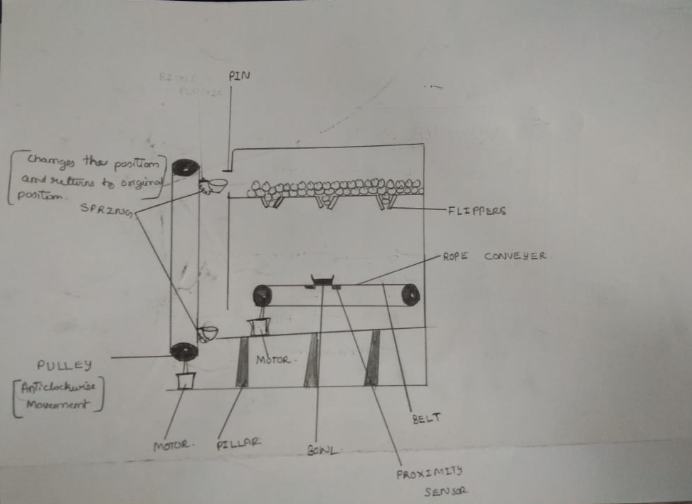 PIN
[Changes the position
and returns to original
position.]
SPRING
FLIPPERS
ROPE CONVEYER
PULLEY
[Anticlockwise
Movement]
MOTOR.
MOTOR.
PILLAR
BOWL
BELT
PROXIMITY
SENSOR